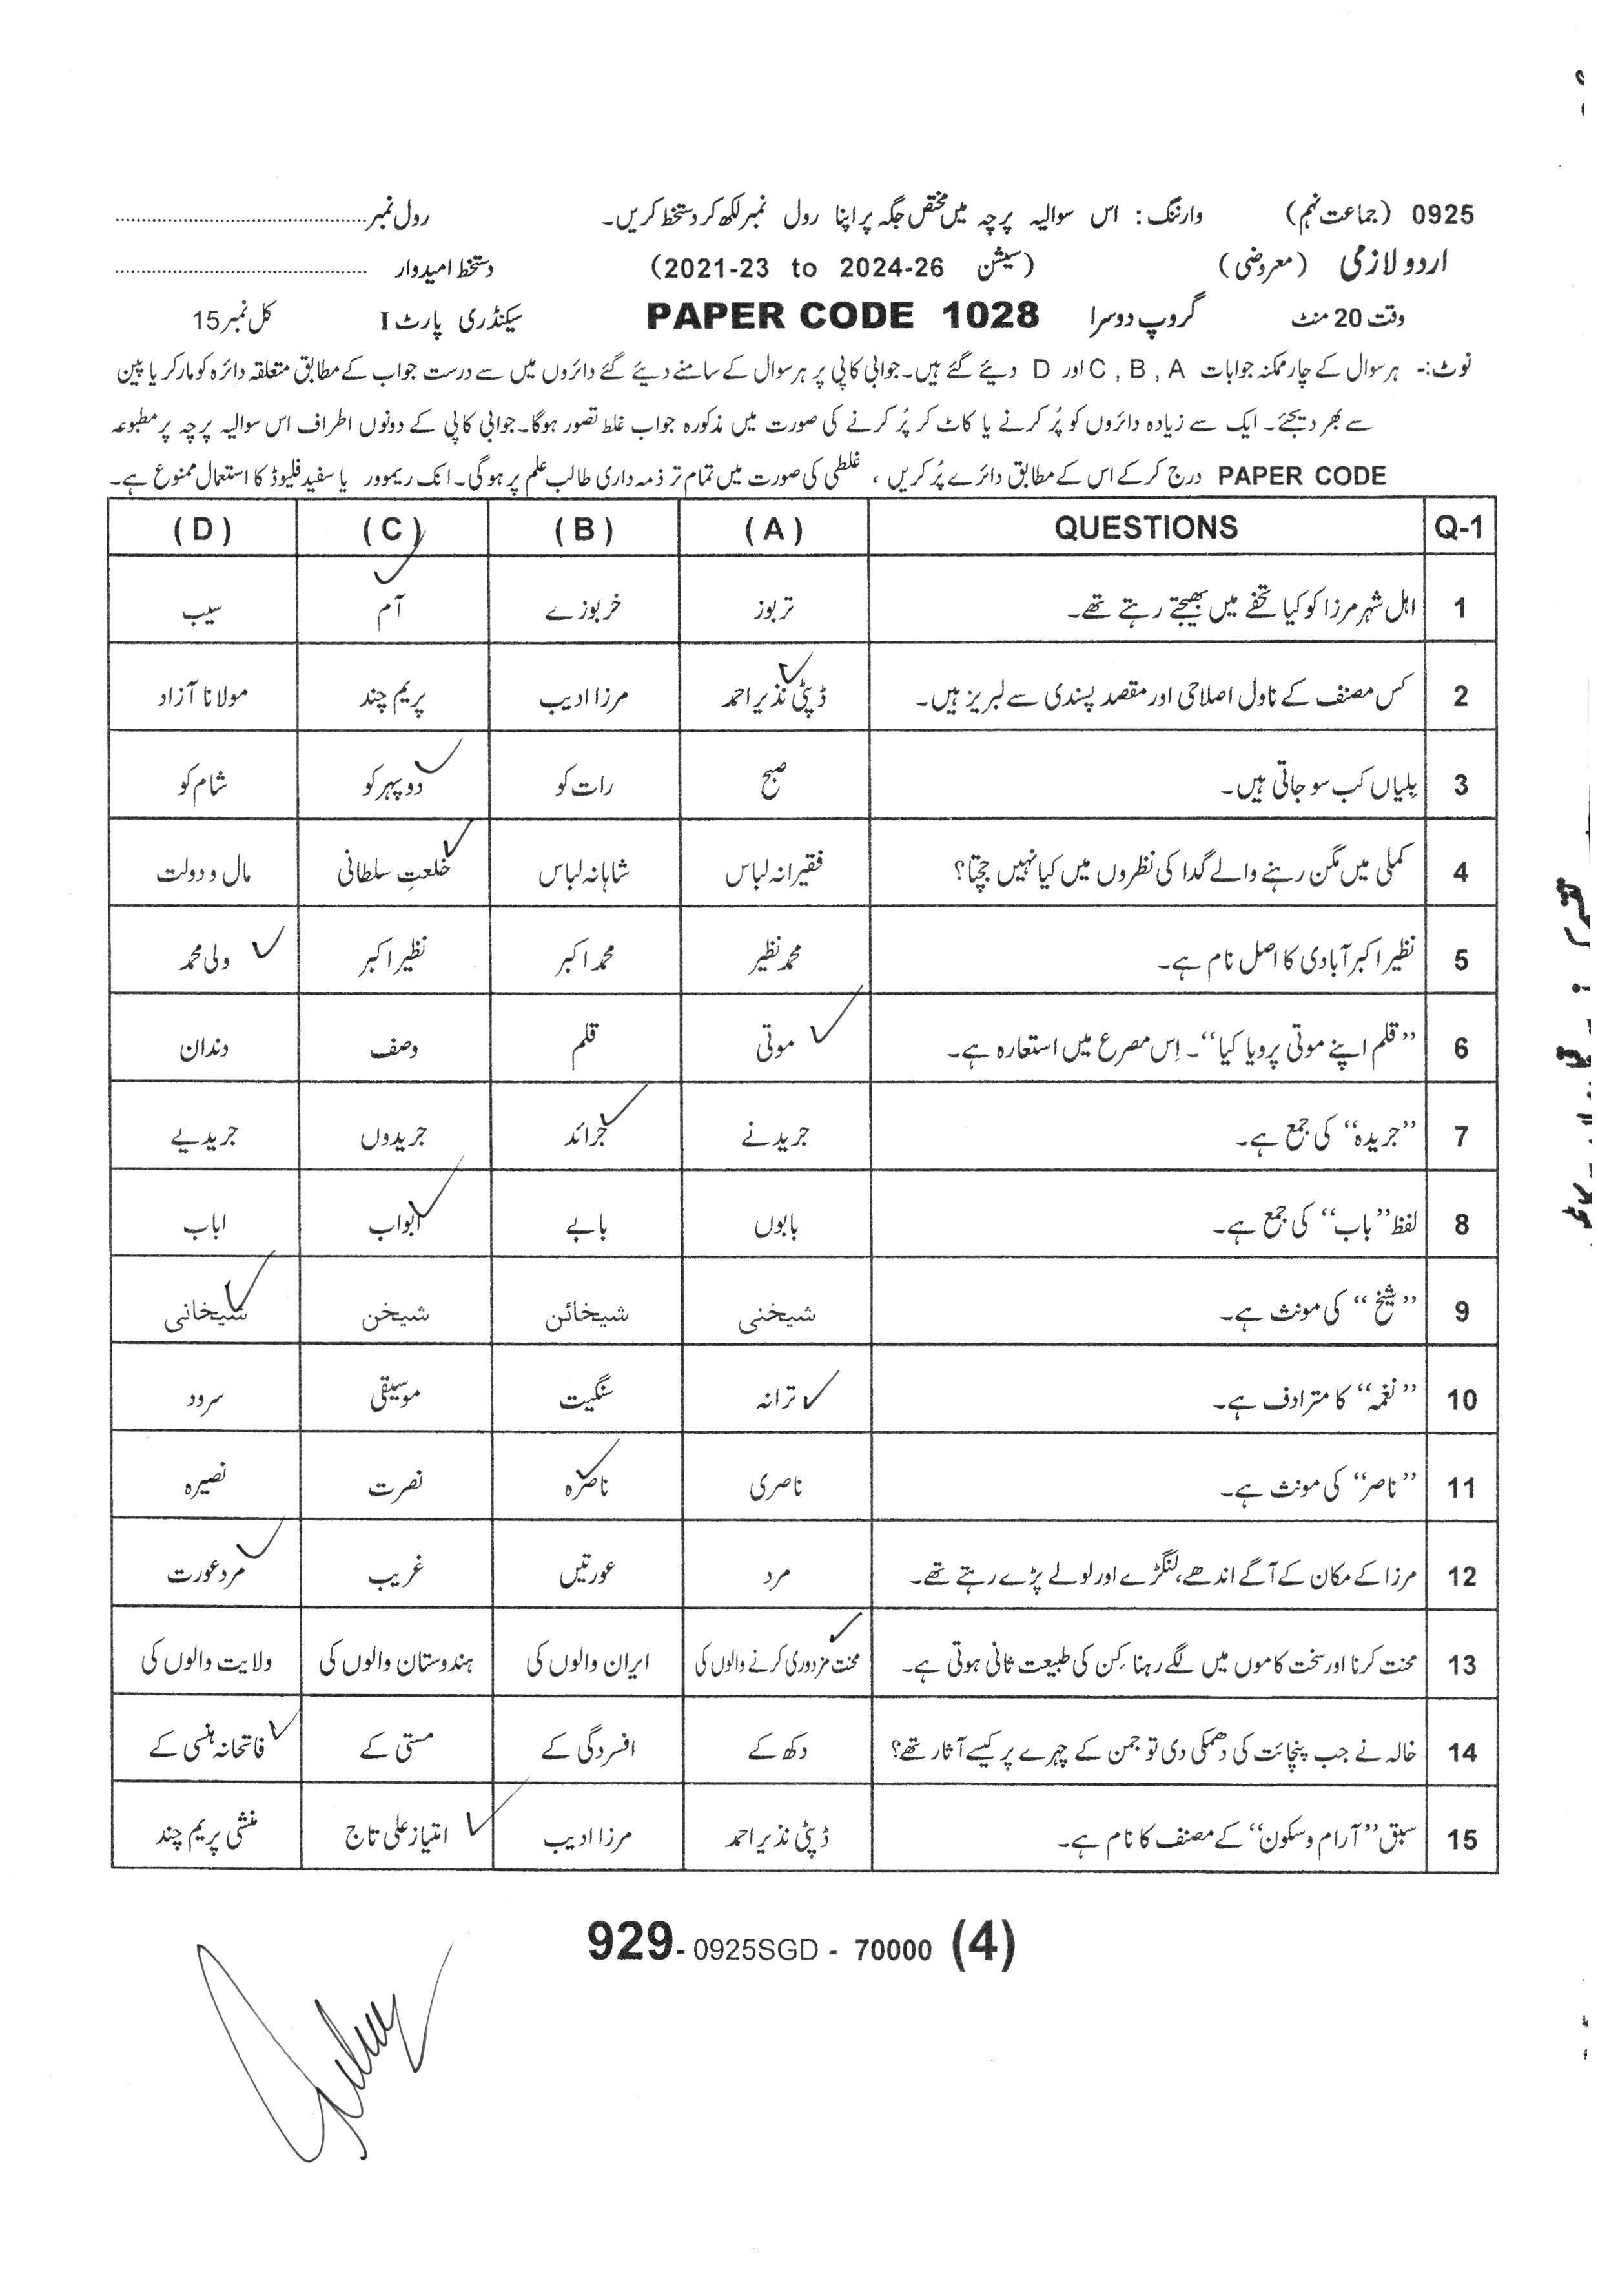 0925 (جماعت نہم) وارننگ: اس سوالیہ پرچہ میں مختص جگہ پر اپنا رول نمبر لکھ کر دستخط کریں۔ رول نمبر
اردو لازمی (معروضی) (سیشن 2021-23 to 2024-26) دستخط امیدوار
وقت 20 منٹ گروپ دوسرا PAPER CODE 1028 سیکنڈری پارٹ I کل نمبر 15
نوٹ:- ہر سوال کے چار ممکنہ جوابات A , B , C اور D دیئے گئے ہیں۔ جوابی کاپی پر ہر سوال کے سامنے دیئے گئے دائروں میں سے درست جواب کے مطابق متعلقہ دائرہ کو مارکر یا پین
سے بھر دیجئے۔ ایک سے زیادہ دائروں کو پُر کرنے یا کاٹ کر پُر کرنے کی صورت میں مذکورہ جواب غلط تصور ہوگا۔ جوابی کاپی کے دونوں اطراف اس سوالیہ پرچہ پر مطبوعہ
PAPER CODE درج کر کے اس کے مطابق دائرے پُر کریں ، غلطی کی صورت میں تمام تر ذمہ داری طالب علم پر ہوگی۔ انک ریموور یا سفید فلیوڈ کا استعمال ممنوع ہے۔
Q-1 QUESTIONS (A) (B) (C) (D)
1 اہل شہر مرزا کو کیا تحفے میں بھیجتے رہتے تھے۔ تربوز خربوزے آم سیب
2 کس مصنف کے ناول اصلاحی اور مقصد پسندی سے لبریز ہیں۔ ڈپٹی نذیر احمد مرزا ادیب پریم چند مولانا آزاد
3 بِلیاں کب سو جاتی ہیں۔ صبح رات کو دوپہر کو شام کو
4 کملی میں مگن رہنے والے گدا کی نظروں میں کیا نہیں جچتا؟ فقیرانہ لباس شاہانہ لباس خلعتِ سلطانی مال و دولت
5 نظیر اکبر آبادی کا اصل نام ہے۔ محمد نظیر محمد اکبر نظیر اکبر ولی محمد
6 ”قلم اپنے موتی پرویا کیا“۔ اِس مصرع میں استعارہ ہے۔ موتی قلم وصف دندان
7 ”جریدہ“ کی جمع ہے۔ جریدنے جرائد جریدوں جریدیے
8 لفظ ”باب“ کی جمع ہے۔ بابوں بابے ابواب اباب
9 ”شیخ“ کی مونث ہے۔ شیخنی شیخائن شیخن شیخانی
10 ”نغمہ“ کا مترادف ہے۔ ترانہ سنگیت موسیقی سرود
11 ”ناصر“ کی مونث ہے۔ ناصری ناصرہ نصرت نصیرہ
12 مرزا کے مکان کے آگے اندھے، لنگڑے اور لولے پڑے رہتے تھے۔ مرد عورتیں غریب مرد عورت
13 محنت کرنا اور سخت کاموں میں لگے رہنا کِن کی طبیعت ثانی ہوتی ہے۔ محنت مزدوری کرنے والوں کی ایران والوں کی ہندوستان والوں کی ولایت والوں کی
14 خالہ نے جب پنچائت کی دھمکی دی تو جمن کے چہرے پر کیسے آثار تھے؟ دکھ کے افسردگی کے مستی کے فاتحانہ ہنسی کے
15 سبق ”آرام و سکون“ کے مصنف کا نام ہے۔ ڈپٹی نذیر احمد مرزا ادیب امتیاز علی تاج منشی پریم چند
929- 0925SGD - 70000 (4)